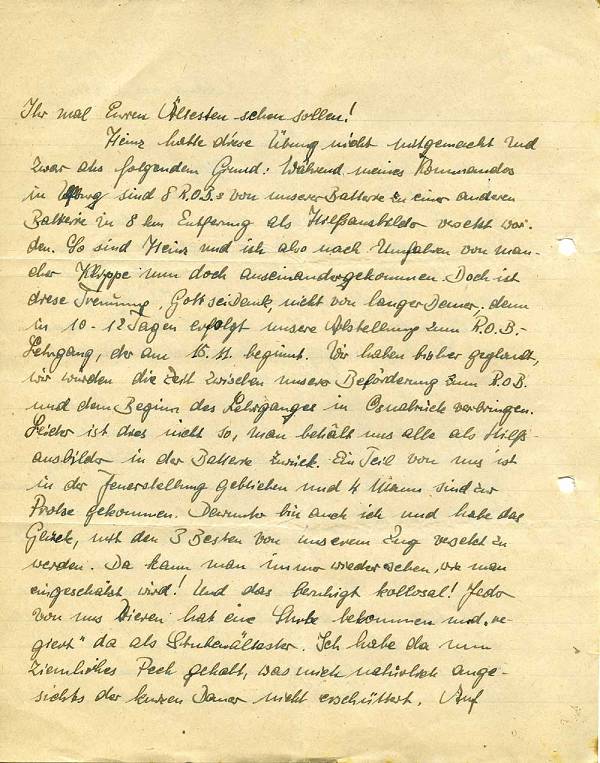 Ihr mal Euren Ältesten sehen sollen!
Heinz hatte diese Übung nicht mitgemacht und
zwar aus folgendem Grund: Während meines Kommandos
in sind 8 R.O.B.s von unserer Batterie zu einer anderen
Batterie in 8 km Entferung als Hilfsausbilder versetzt wor-
den. So sind Heinz und ich also nach Umfahren von man-
cher Klippe nun doch auseinandergekommen. Doch ist
diese Trennung, Gott sei Dank, nicht von langer Dauer, denn
in 10-12 Tagen erfolgt unsere Abstellung zum R.O.B.-
Lehrgang, der am 15.11. beginnt. Wir haben bisher geglaubt,
wir würden die Zeit zwischen unserer Beförderung zum R.O.B.
und dem Beginn des Lehrganges in Osnabrück verbringen.
Leider ist dies nicht so, man behält uns alle als Hilfs-
ausbilder in der Batterie zurück. Ein Teil von uns ist
in der Feuerstellung geblieben und 4 Mann sind zur
Protze gekommen. Darunter bin auch ich und habe das
Glück, mit den 3 Besten von unserem Zug versetzt zu
werden. Da kann man immer wieder sehen, wie man
eingeschätzt wird! Und das beruhigt kollosal! Jeder
von uns Vieren hat eine Stube bekommen und „re-
giert" da als Stubenältester. Ich habe da nun
ziemliches Pech gehabt, was mich natürlich ange-
sichts der kurzen Dauer nicht erschüttert. Auf